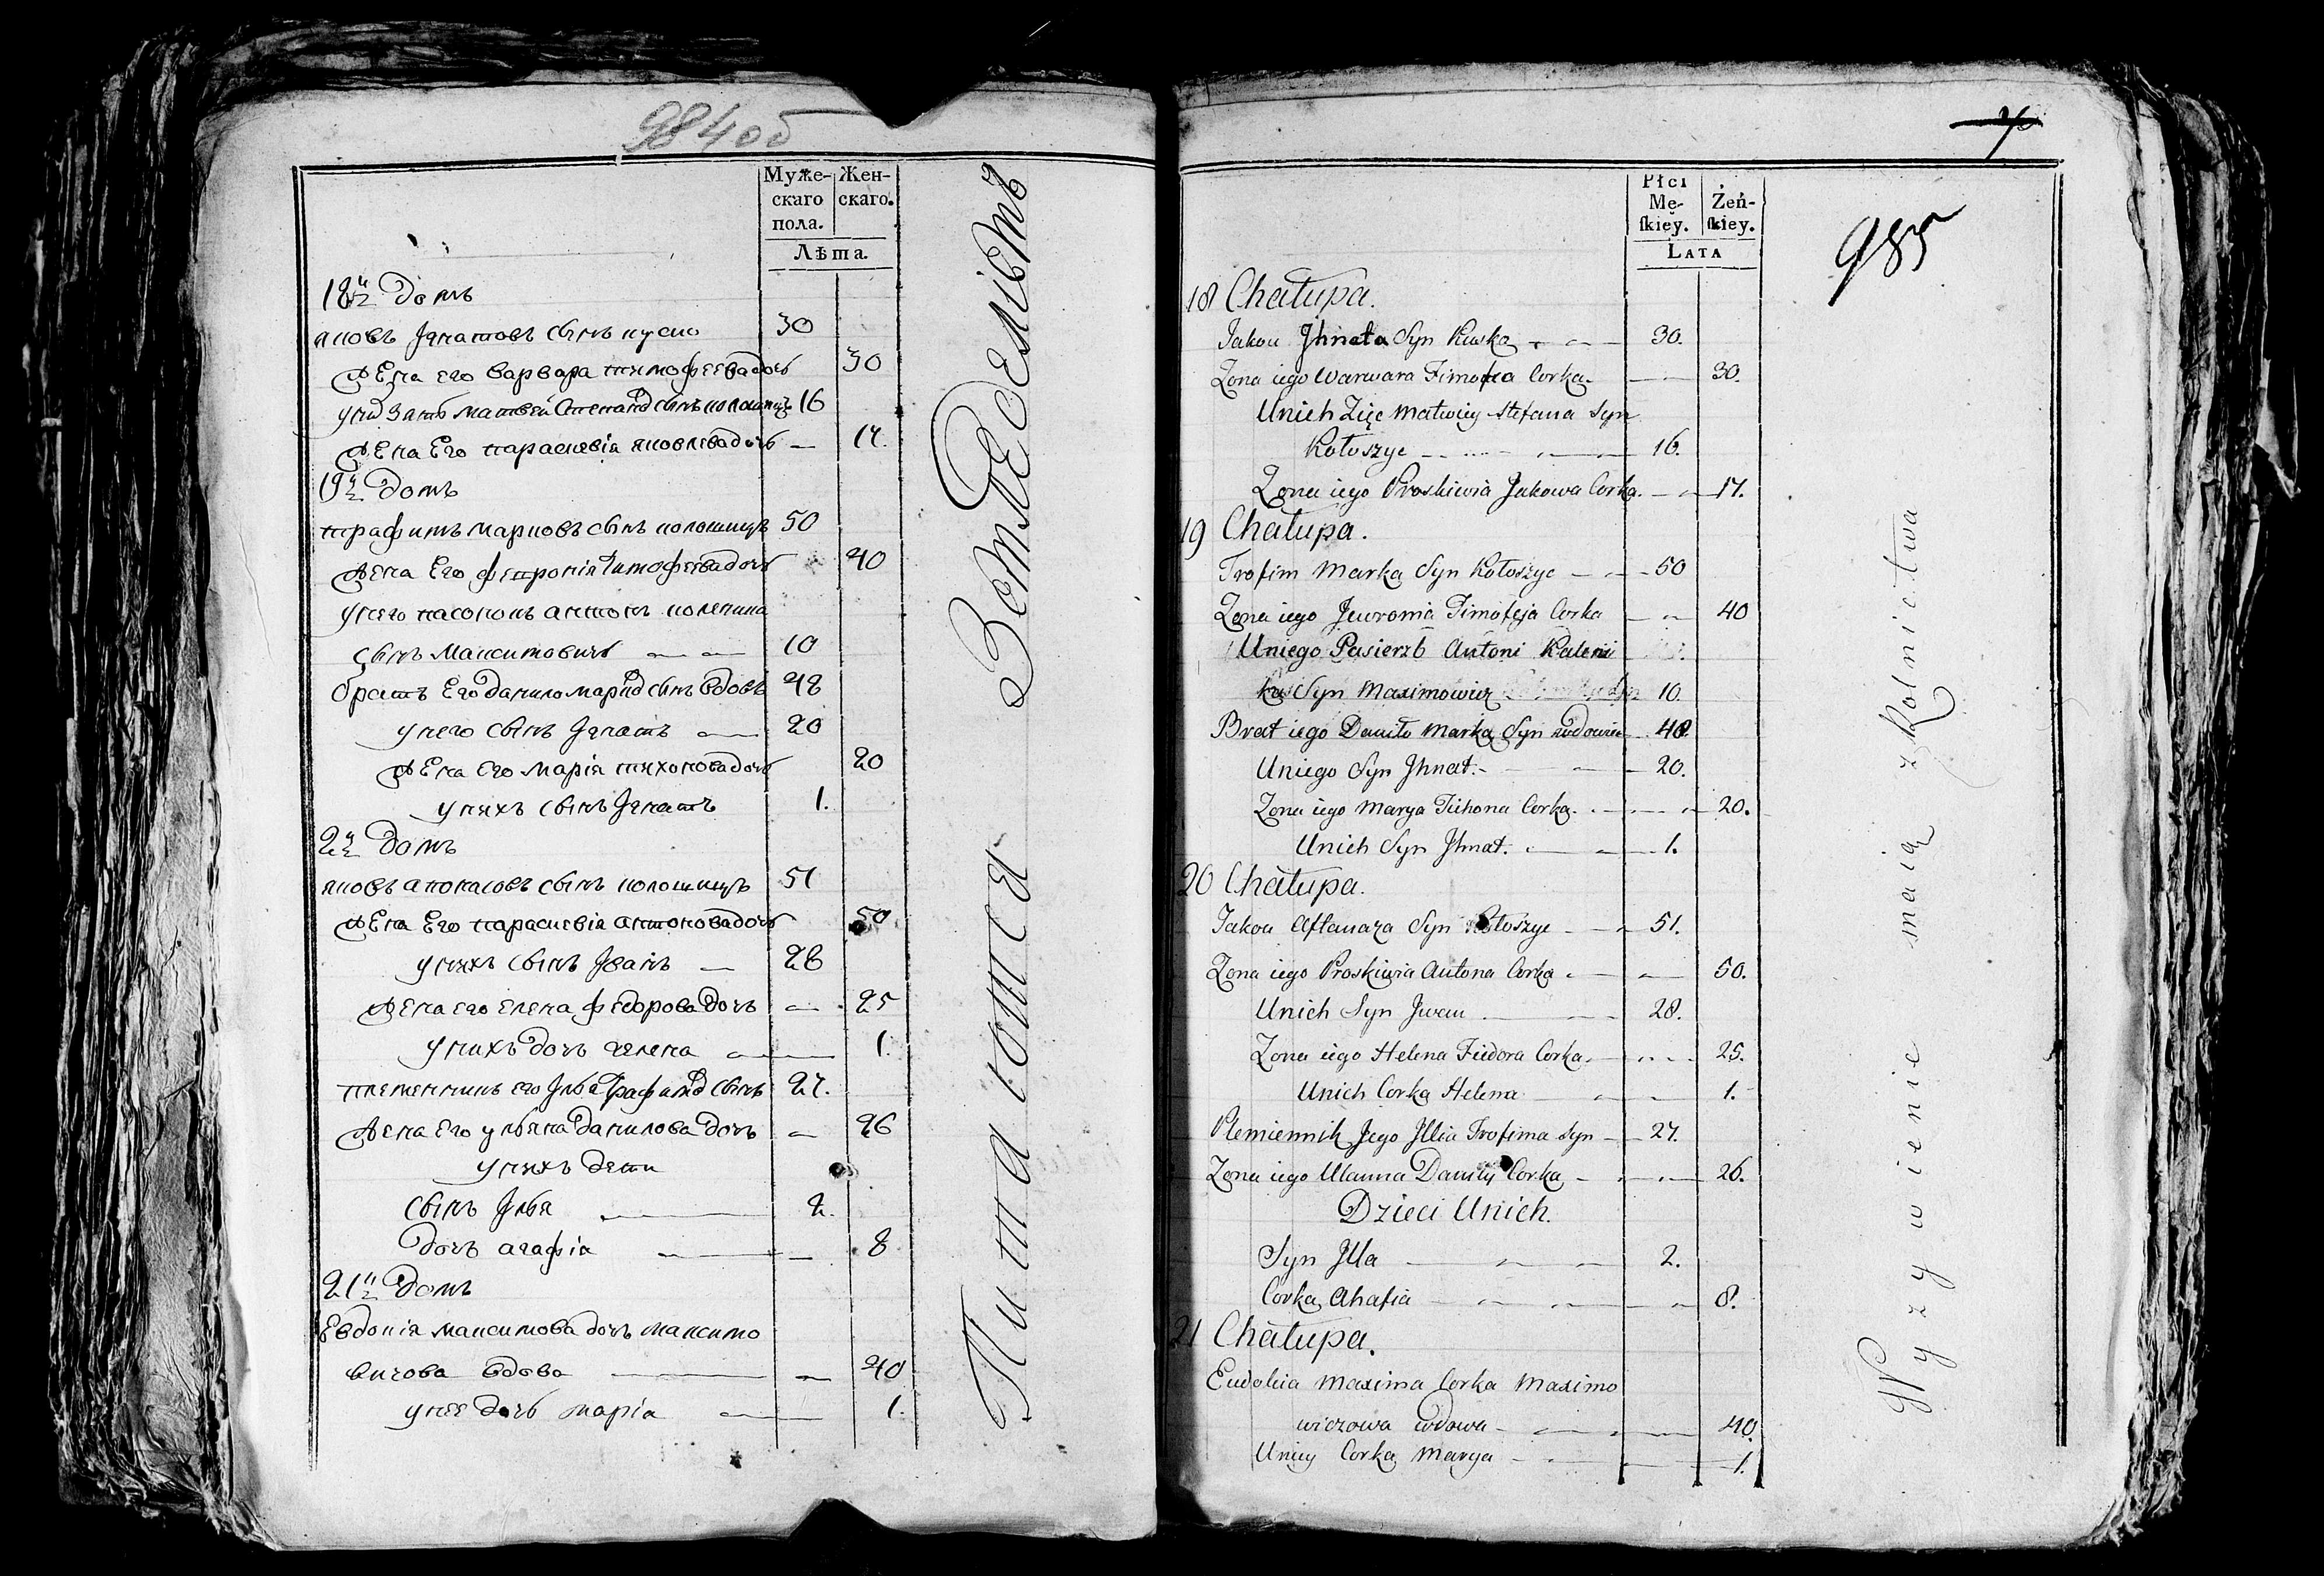 984об
Муже- Жен-
скаго скаго.
пола.
Лѣта.
18й Домъ
яковъ Игнатовъ сынъ куско 30
Жена его варвара тимофеева дочь 30
у них зять матвей Степанов сынъ колошицъ 16
Жена Его параскевiя яковлева дочь — 17.
19й Домъ
трафимъ марковъ сынъ колошицъ 50
Жена Его феуронiя тимофеева дочь 40
у него пасонокъ антонъ коленика
сынъ максимовичъ — — 10
братъ Его данило марков сынъ вдовъ 48
у него сынъ Игнатъ — 20
Жена его марiя тихонова дочь 20
у нихъ сынъ Игнатъ 1.
2й Домъ
яковъ апонасовъ сынъ колошицъ 51
Жена Его параскевiя антонова дочь 50
у нихъ сынъ Иванъ — 28
Жена его елена федорова дочь — 25
у нихъ дочь гелена — 1.
племенникъ его Илья трафимов сынъ 27.
Жена Его ульяна Данилова дочь — 26
у нихъ дети
сынъ Илья — 2.
дочь агафiа — 8
21й Домъ
Евдокiя максимова дочь максимо
вичова вдова — 40
у нее дочь марiа — 1.
Питаются Земледелiемъ
7
985
Płci
Mę- Żeń-
skiey. skiey.
LATA
18 Chałupa.
Jakou Jhnata Syn Kuska — 30.
Zona iego Warwara Timofea Corka — 30.
Unich Zięć Matwiey Stefana Syn
Kołoszyc — 16.
Zona iego Proskiwia Jakowa Corka — 17.
19 Chałupa.
Trofim Marka Syn Kołoszyc — 50
Zona iego Jewronia Timofeja Corka — 40
Uniego Pasierzb Antoni Kaleni
ka Syn Maximowicz 10.
Brat iego Daniło Marka Syn wdowiec 48.
Uniego Syn Jhnat. — 20.
Zona iego Marya Tichona Corka. — 20.
Unich Syn Jhnat. — 1.
20 Chałupa.
Jakou Aftanaza Syn Kołoszyc — 51.
Zona iego Proskiwia Antona Corka — 50.
Unich Syn Jwan — 28.
Zona iego Helena Fiedora Corka — 25.
Unich Corka Helena — 1.
Plemiennik Jego Jllia Trofima Syn — 27.
Zona iego Ulanna Daniły Corka — 26.
Dzieci Unich.
Syn Jlla — 2.
Corka Ahafia — 8.
21 Chałupa.
Eudokia Maxima Corka Maximo
wiczowa wdowa — 40.
Uniey Corka Marya — 1.
Wyzywienie maią z Rolnictwa